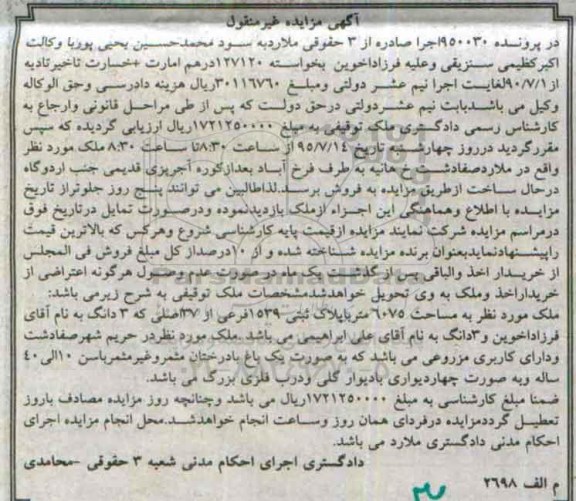 آگهی مزایده غیرمنقول
در پرونده ۹۵۰۰۳۰اجرا صادره از ۳ حقوقی ملاردبه سود محمدحسین یحیی پوربا وکالت
اکبرکظیمی سنزیقی وعلیه فرزاداخوین بخواسته ۱۲۷۱۲۰درهم امارت +خسارت تاخیرتادیه
از۹۰/۷/۱لغایت اجرا نیم عشر دولتی ومبلغ ۳۰۱۱۶۷۶۰ریال هزینه دادرسی وحق الوکاله
وکیل می باشدبابت نیم عشردولتی درحق دولت که پس از طی مراحل قانونی وارجاع به
کارشناس رسمی دادگستری ملک توقیفی به مبلغ ۱۷۲۱۲۵۰۰۰۰ریال ارزیابی گردیده که سپس
مقررگردید درروز چهارشنبه تاریخ ۹۵/۷/۱۴از ساعت ۸:۳۰تا ساعت ۸:۳۰ ملک مورد نظر
واقع در ملاردصفادشت هانیه به طرف فرخ آباد بعدازکوره آجرپزی قدیمی جنب اردوگاه
درحال ساخت ازطریق مزایده به فروش برسد.لذاطالبین می توانند پنج روز جلوتراز تاریخ
مزایده با اطلاع وهماهنگی این اجراء ازملک بازدیدنموده ودرصورت تمایل درتاریخ فوق
درمراسم مزایده شرکت نمایند مزایده ازقیمت پایه کارشناسی شروع وهرکس که بالاترین قیمت
راپیشنهادنمایدبعنوان برنده مزایده شناخته شده و از ۱۰درصداز کل مبلغ فروش فی المجلس
از خریدار اخذ والباقی پس از گذشت یک ماه در صورت عدم وصول هرگونه اعتراضی از
خریداراخذ وملک به وی تحویل خواهدشدمشخصات ملک توقیفی به شرح زیرمی باشد:
ملک مورد نظر به مساحت ۶۰۷۵ مترباپلاک ثبتی ۱۵۳۹فرعی از ۳۷اصلی که ۳ دانگ به نام آقای
فرزاداخوین و۳دانگ به نام آقای علی ابراهیمی می باشد .ملک مورد نظردر حریم شهرصفادشت
ودارای کاربری مزروعی می باشد که به صورت یک باغ بادرختان مثمروغیرمثمرباسن ۱۰الی ۴۰
ساله وبه صورت چهاردیواری بادیوار گلی ودرب فلزی بزرگ می باشد.
ضمنا مبلغ کارشناسی به مبلغ ۱۷۲۱۲۵۰۰۰۰ریال می باشد وچنانچه روز مزایده مصادف باروز
تعطیل گرددمزایده درفردای همان روز وساعت انجام خواهدشد.محل انجام مزایده اجرای
احکام مدنی دادگستری ملارد می باشد.
دادگستری اجرای احکام مدنی شعبه ۳ حقوقی -محامدی
م الف ۲۶۹۸